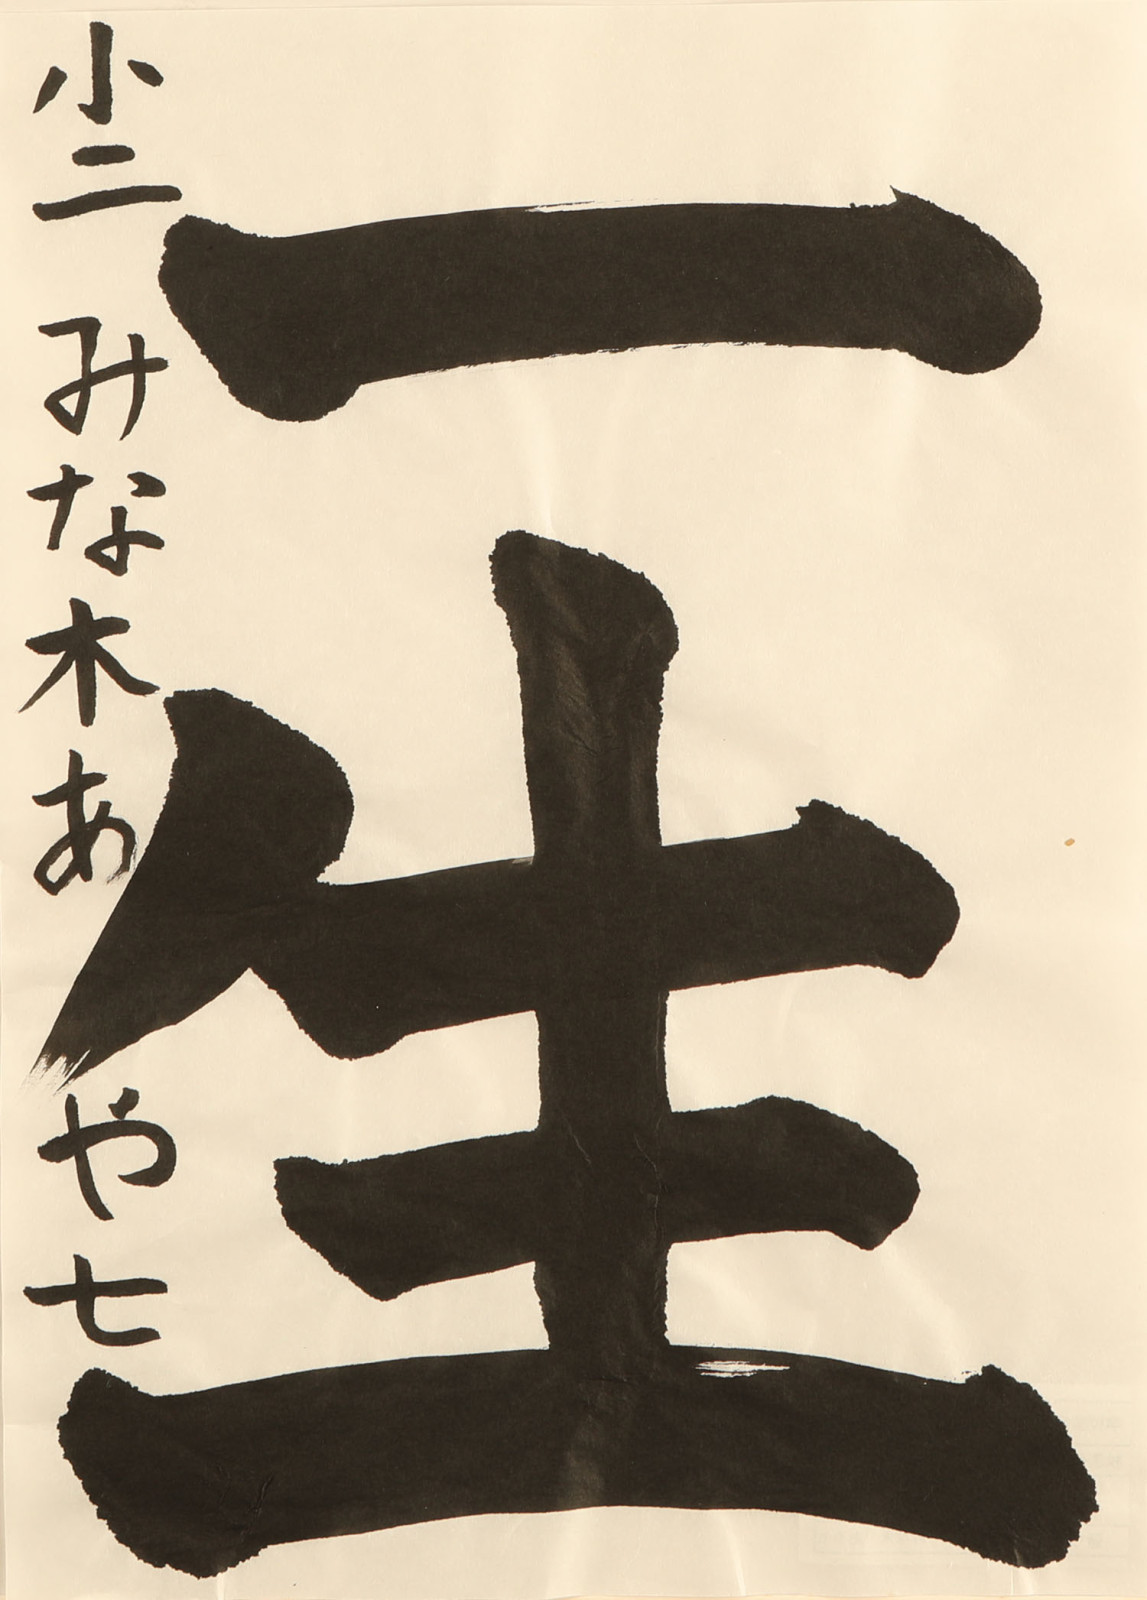 一生
小二 みな木あや七